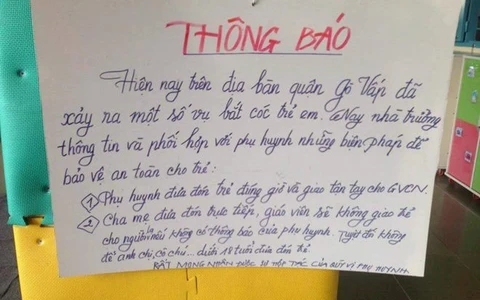 THÔNG BÁO
Hiện nay trên địa bàn quận Gò Vấp đã
xảy ra một số vụ bắt cóc trẻ em. Nay nhà trường
thông tin và phối hợp với phụ huynh những biện pháp để
bảo vệ an toàn cho trẻ:
1 Phụ huynh đưa đón trẻ đúng giờ và giao tận tay cho GVCN.
2 Cha mẹ đưa đón trực tiếp, giáo viên sẽ không giao trẻ
cho người lạ nếu không có thông báo của phụ huynh. Tuyệt đối không
để anh chị, cô chú... dưới 18 tuổi đưa đón trẻ
RẤT MONG NHẬN ĐƯỢC SỰ HỢP TÁC CỦA QUÝ VỊ PHỤ HUYNH